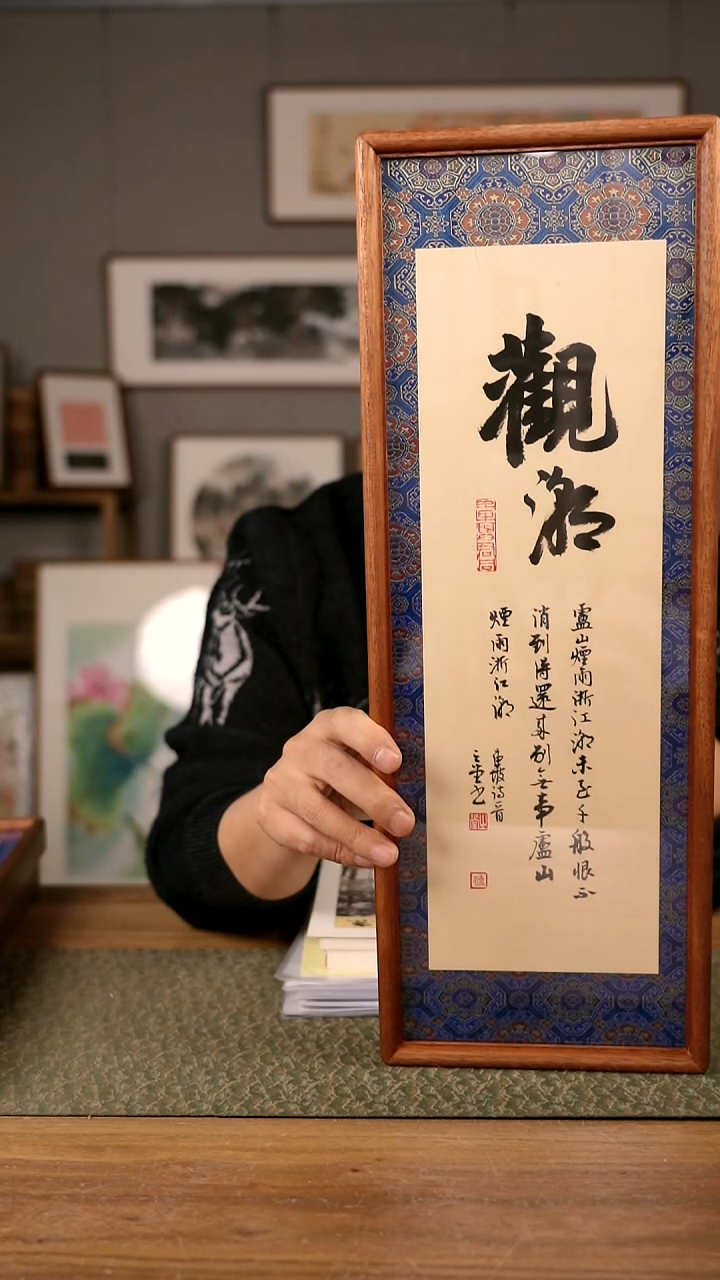 觀潮
盧山煙雨浙江潮未至千般恨不
消到得還來別無事廬山
煙雨浙江潮
東坡詩一首